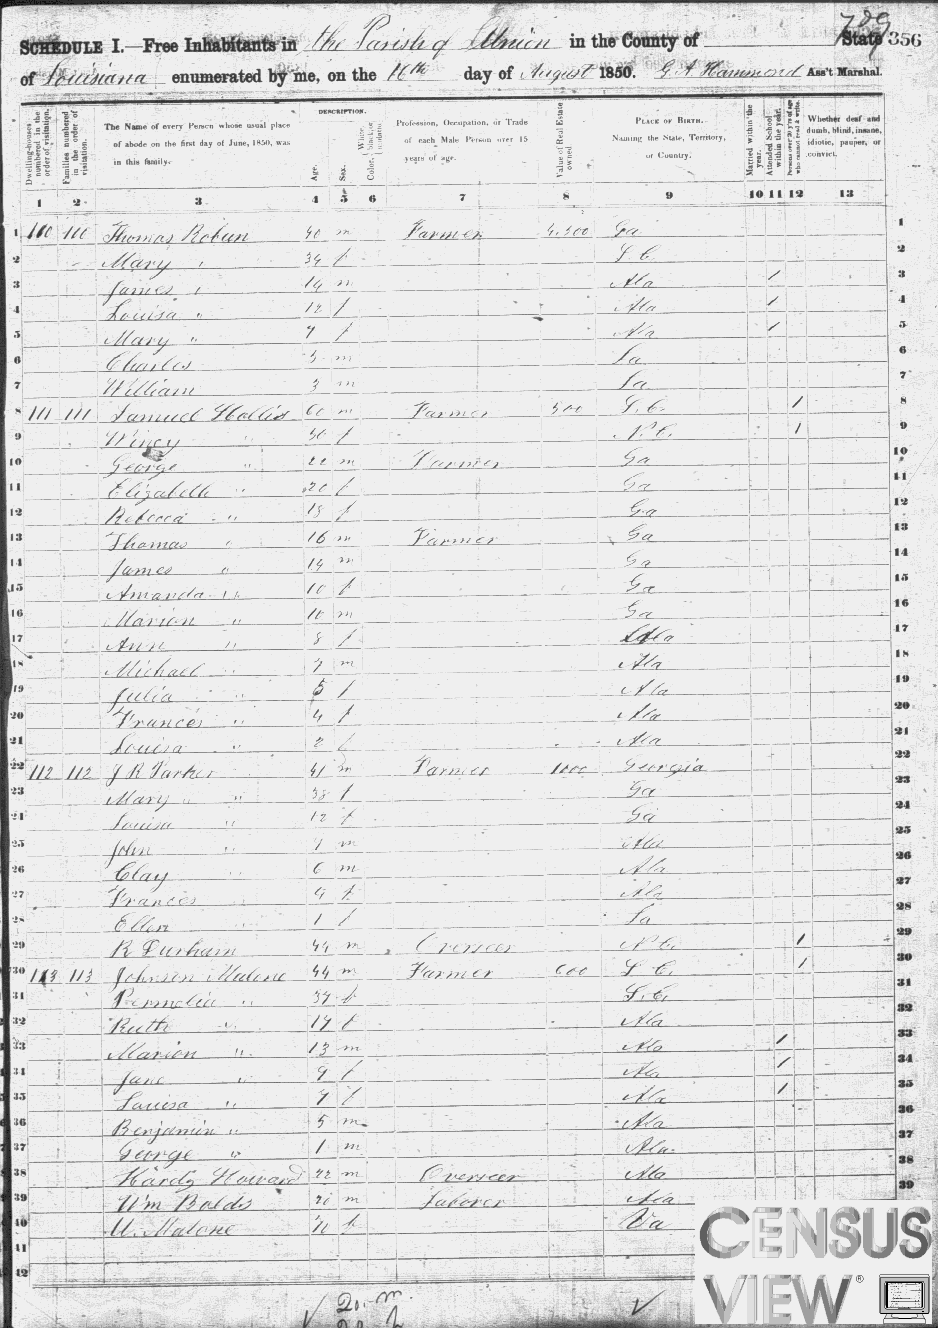 789
SCHEDULE I.—Free Inhabitants in the Parish of Union in the County of State 356
of Louisiana enumerated by me, on the 16th day of August 1850. G. A. Hammond Ass't Marshal.
Dwelling-houses numbered in the order of visitation.
Families numbered in the order of visitation.
The Name of every Person whose usual place of abode on the first day of June, 1850, was in this family.
DESCRIPTION.
Age.
Sex.
White, Color, black, or mulatto
Profession, Occupation, or Trade of each Male Person over 15 years of age.
Value of Real Estate owned
PLACE OF BIRTH. Naming the State, Territory, or Country.
Married within the year.
Attended School within the year.
Persons over 20 y'rs of age who cannot read & write.
Whether deaf and dumb, blind, insane, idiotic, pauper, or convict.
1 2 3 4 5 6 7 8 9 10 11 12 13
1 110 110 Thomas 40 m Farmer Ga 1
2 Mary " 34 f S C 2
3 James " 14 m Ala / 3
4 Louisa " 12 f Ala / 4
5 Mary " 7 f Ala / 5
6 Charles m La 6
7 William 3 m La 7
8 111 111 Samuel Hollis 60 m Farmer 500 S. C. / 8
9 Winey " f N. C. / 9
10 George " 22 m Farmer Ga 10
11 Elizabeth " 20 f Ga 11
12 Rebecca " 18 f Ga 12
13 Thomas " 16 m Farmer Ga 13
14 James " 14 m Ga 14
15 Amanda " 10 f Ga 15
16 Marion " 10 m Ga 16
17 Ann " 8 f Ala 17
18 Michael " 7 m Ala 18
19 Julia " 5 f Ala 19
20 Frances " 4 f Ala 20
21 Louisa " 2 f Ala 21
22 112 112 J R Parker 41 m Farmer 1000 Georgia 22
23 Mary " 38 f Ga 23
24 Louisa " 12 f Ga 24
25 John " m Ala 25
26 Clay " 6 m Ala 26
27 Frances " f Ala 27
28 Ellen " 1 f La 28
29 R Durham 44 m Overseer N C. / 29
30 113 113 Johnson Malone 44 m Farmer 600 S. C. / 30
31 Permelia " 37 f S. C. 31
32 Ruth " 17 f Ala 32
33 Marion " 13 m Ala / 33
34 Jane " 9 f Ala / 34
35 Louisa " 7 f Ala / 35
36 Benjamin " 5 m Ala 36
37 George " 1 m Ala 37
38 Hardy Howard 22 m Overseer Ala 38
39 Wm Bolds m Laborer Ala 39
40 Malone f Va
41
42
20. m.
CENSUS
VIEW®